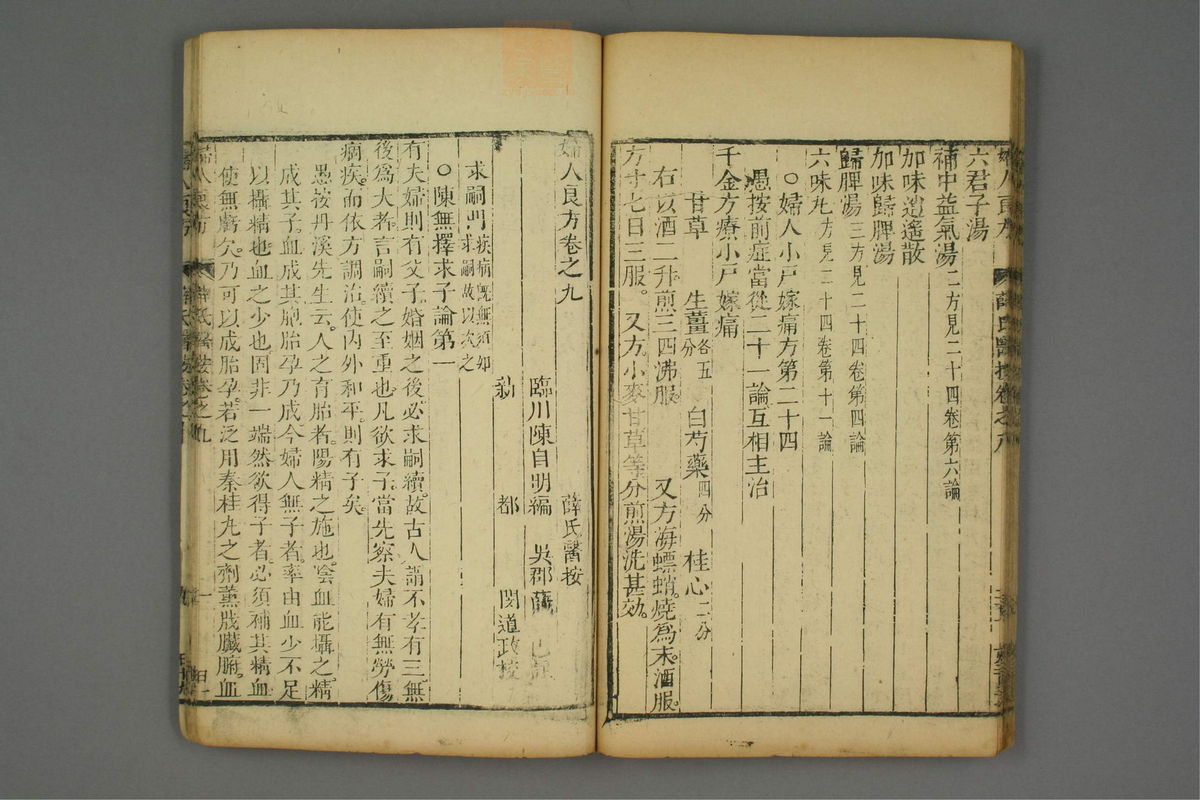 六君子湯
補中益氣湯二方見二十四卷第六論
加味逍遙散
加味歸脾湯
歸脾湯三方見二十四卷第四論
六味丸方見二十四卷第十一論
○婦人小戸嫁痛方第二十四
愚按前症當從二十一論互相主治
千金方療小戸嫁痛
甘草　生薑各五分　白芍藥四分　桂心二分
右以酒二升煎三四沸服。　又方海螵蛸燒爲末酒服。
方寸匕日三服。又方小麥甘草等分煎湯洗甚効。
婦人良方卷之九　薛氏醫按
臨川陳自明編　吳郡薛己
新都　閔道政校
求嗣門疾病既無須知求嗣故以次之
○陳無擇求子論第一
有夫婦則有父子婚姻之後必求嗣續故古人謂不孝有三無
後爲大者言嗣續之至重也凡欲求子當先察夫婦有無勞傷
痼疾而依方調治使內外和平則有子矣。
愚按丹溪先生云人之育胎者陽精之施也陰血能攝之精
成其子血成其胞胎孕乃成今婦人無子者率由血少不足
以攝精也血之少也固非一端然欲得子者必須補其精血
使無虧欠乃可以成胎孕若泛用秦桂丸之劑薰戕臟腑血
薛氏醫按卷之九